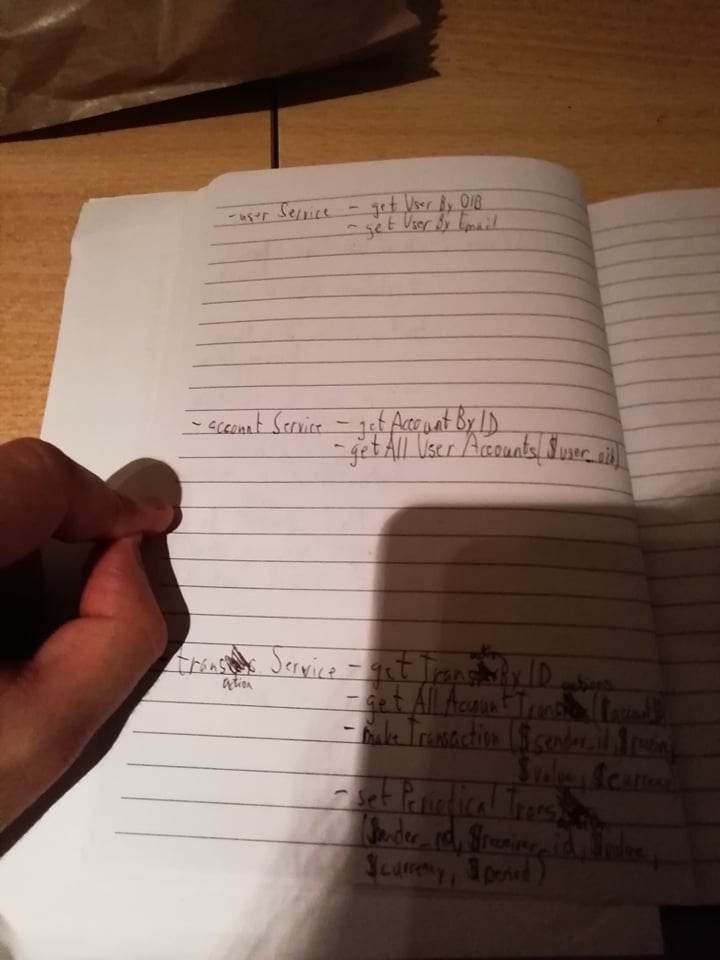 - user Service - get User By OIB
- get User By Email
- account Service - get Account By ID
- get All User Accounts ($user_oib)
trans action Service - get Trans action By ID
- get All Account Trans actions ($account
- make Transaction ($sender_id, $receiver
$value, $currency
- set Periodical Trans
($sender_id, $receiver_id, $value,
$currency, $period)